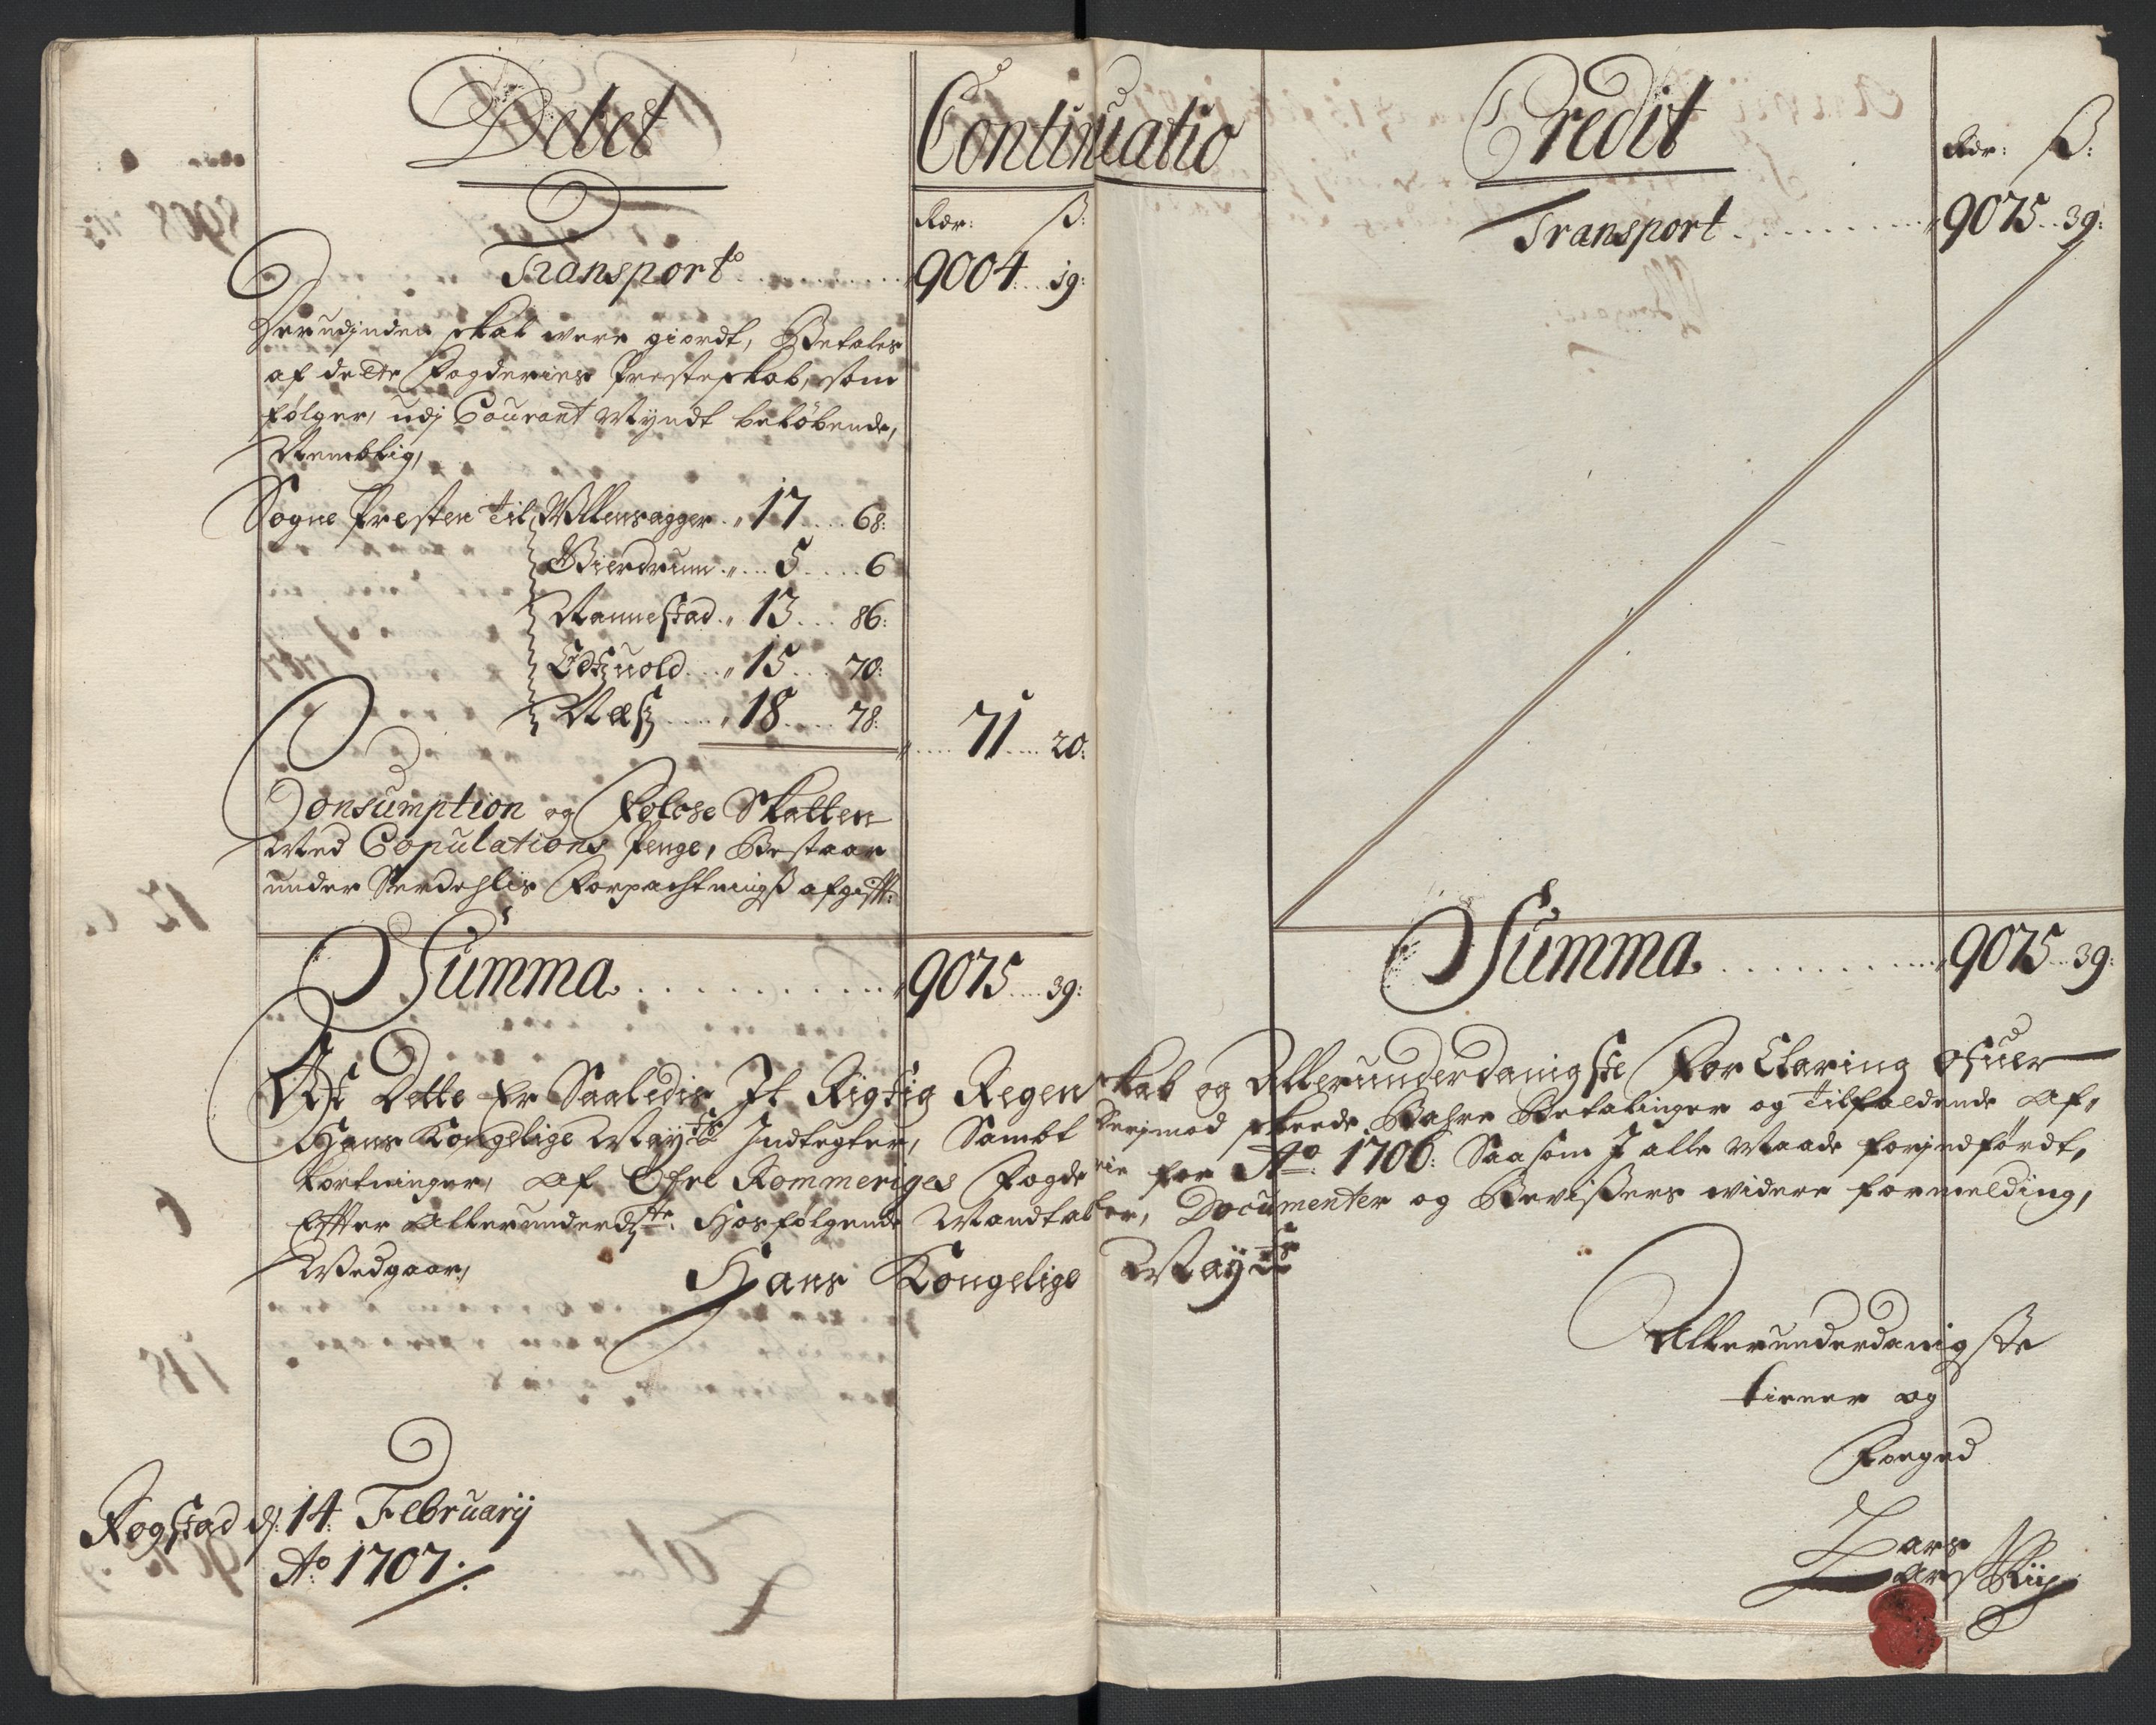 Debet
Continuatio
Rdr: ß:
Transport 9004 19:
Derudjnden skal were giordt, Betales
af dette Fogderies Presteskab, som
følger, udj Courant Myndt beløbende,
Nemblig,
Sogne Presten til Ullensagger 17 68:
Gierdrum 5 6
Nannestad 13 86:
Edtzuold 15 70:
Næsz 18 78:
71 20:
Consumption og Folche Skatten
Med Copulations Penge, Bestaar
under Forpachtningß afgifft:
Summa 9075 39:
Credit
Rdr: ß:
Transport 9075 39:
Summa 9075 39:
At Dette Er Saaledis Jt Rigtig Regenskab og Allerunderdanigste For Claring Ofuer
Hans Kongelige Maÿts Indtegter, Sambt herjmod skeede Bahre Betalinger og tilfaldende Af,
kortninger, Af Øfre Rommeriges Fogderie for Ao: 1706: Saa som J alle Maade forjndførdt,
Effter Allerunderdste: Hosfølgende Mandtaller, Documenter og Bevißers widere formelding,
Wedgaar,
Hans Kongelige Maÿts
Allerunderdanigste
tiener og
Foeged
Rogstad d: 14 Februarij
Ao 1707.
Lars